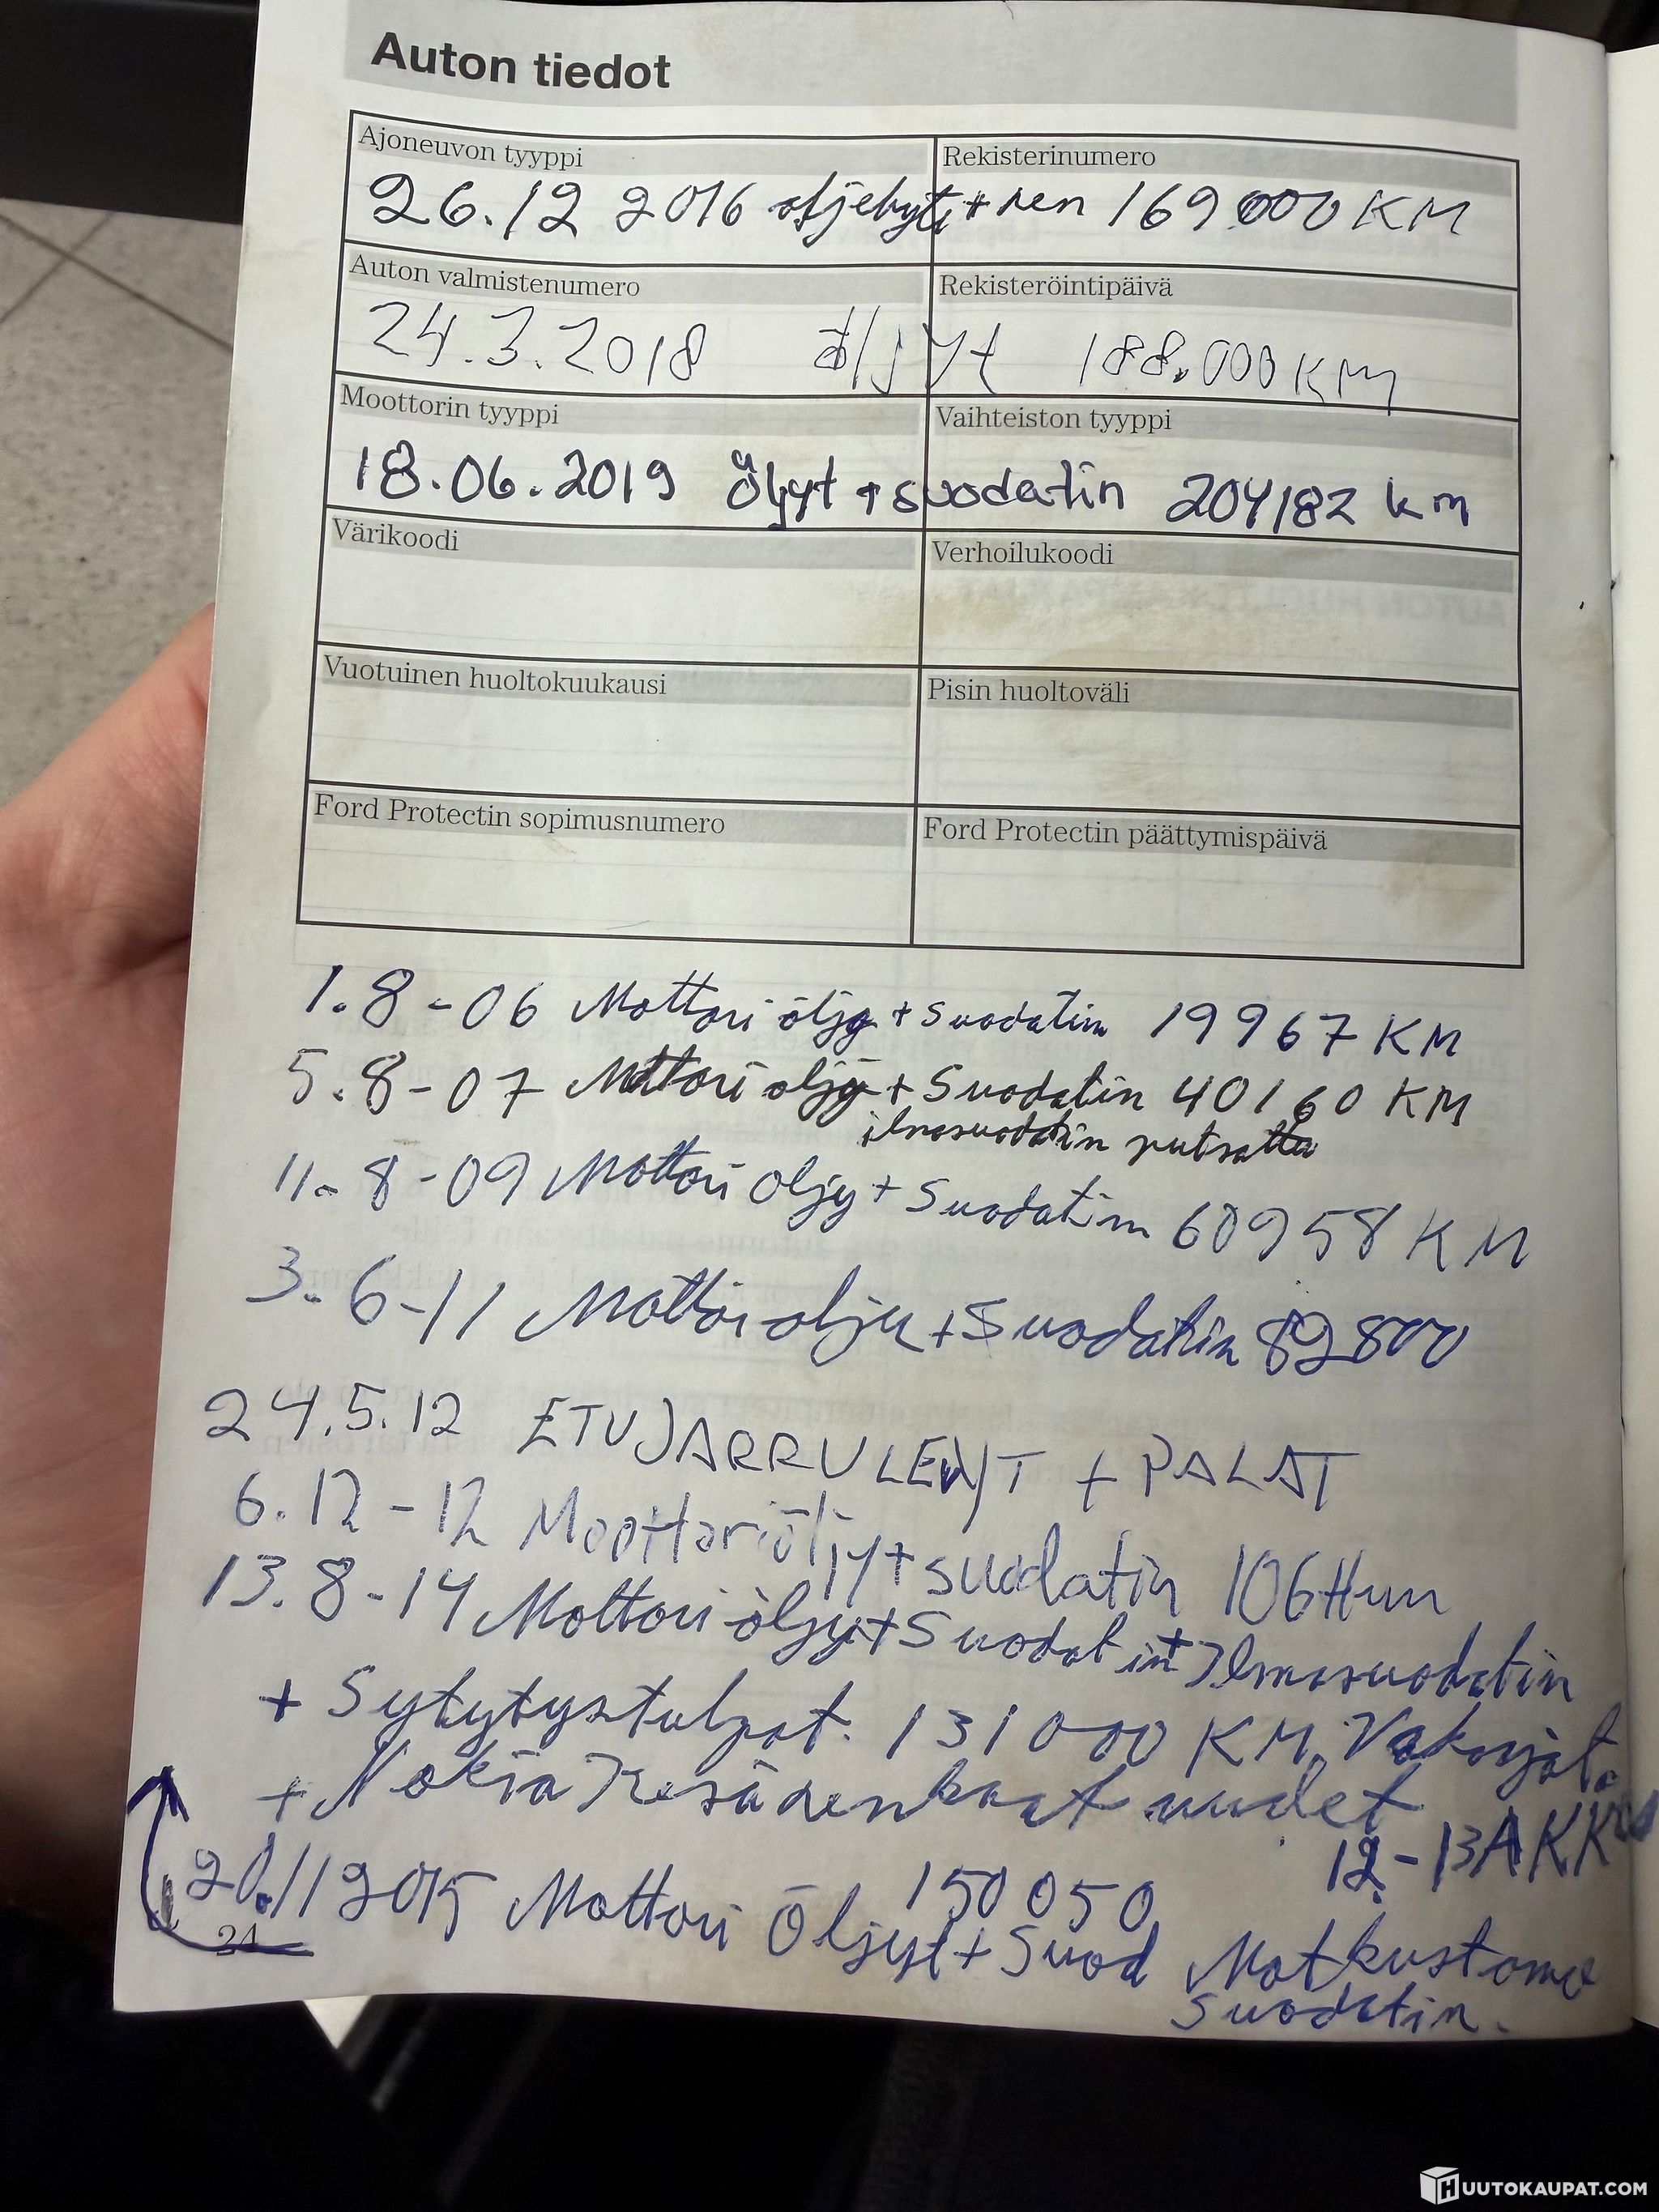 Auton tiedot
Ajoneuvon tyyppi Rekisterinumero
26.12 2016 169000 KM
Auton valmistenumero Rekisteröintipäivä
24.3.2018 öljyt 188.000 KM
Moottorin tyyppi Vaihteiston tyyppi
18.06.2019 Öljyt + suodatin 204182 km
Värikoodi Verhoilukoodi
Vuotuinen huoltokuukausi Pisin huoltoväli
Ford Protectin sopimusnumero Ford Protectin päättymispäivä
1.8-06 Mottori öljy + Suodatin 19967 KM
5.8-07 Mottori öljy + Suodatin 40160 KM
ilmasuodatin putsattu
11.8-09 Mottori öljy + Suodatin 60958 KM
3.6-11 Mottori + Suodatin 82800
24.5.12 ETUJARRULEVYT + PALAT
6.12-12 Moottoriöljy + suodatin 106
13.8-14 Mottori öljy + Suodatin + Ilmasuodatin
+ Sytytystulpat. 131000 KM.
+ Nokia Kesärenkaat uudet
12-13 AKKU
150050
20.11 2015 Mottori Öljyt + Suod
Suodatin.
24
HUUTOKAUPAT.COM